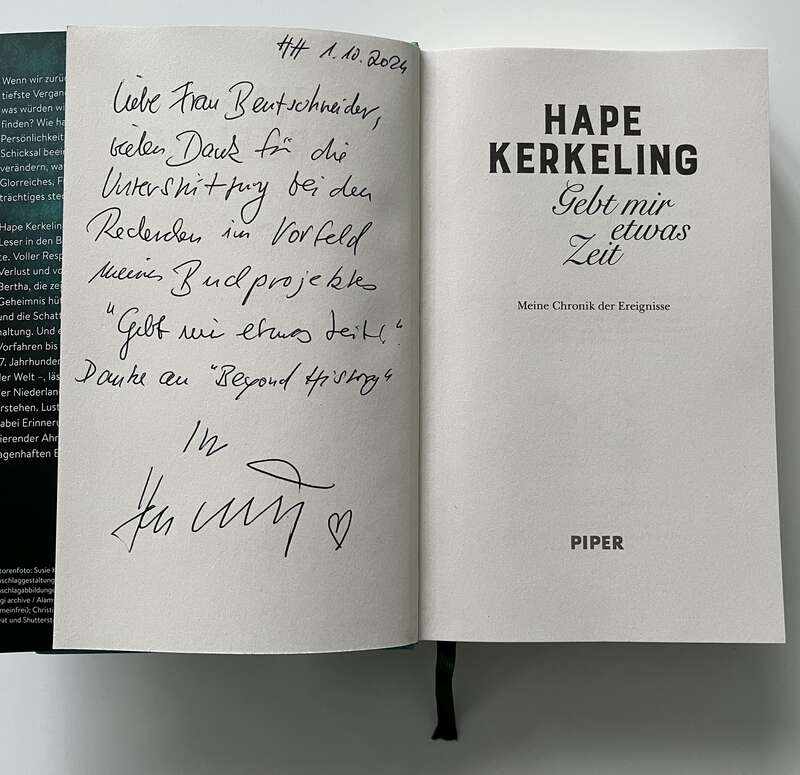 Wenn wir zurü
tiefste Vergan
was würden wi
finden? Wie ha
Persönlichkeit
Schicksal beein
verändern, wa
Glorreiches, F
trächtiges ste
Hape Kerkeling
Leser in den B
te. Voller Resp
Verlust und vo
Bertha, die ze
Geheimnis hüt
und die Schatt
haltung. Und e
Vorfahren bis
7. Jahrhunder
der Welt –, läs
er Niederlan
rstehen. Lust
abei Erinneru
ierender Ahn
agenhaften E
torenfoto: Susie K
schlaggestaltung
schlagabbildung
gi archive / Alam
meinfrei); Christi
vat und Shutterst
HH 1.10.2024
Liebe Frau Bentschneider,
vielen Dank für die
Unterstützung bei den
Recherchen im Vorfeld
meines Buchprojektes
"Gebt mir etwas Zeit".
Danke an "Beyond History"
Ihr
HAPE
KERKELING
Gebt mir
etwas
Zeit
Meine Chronik der Ereignisse
PIPER